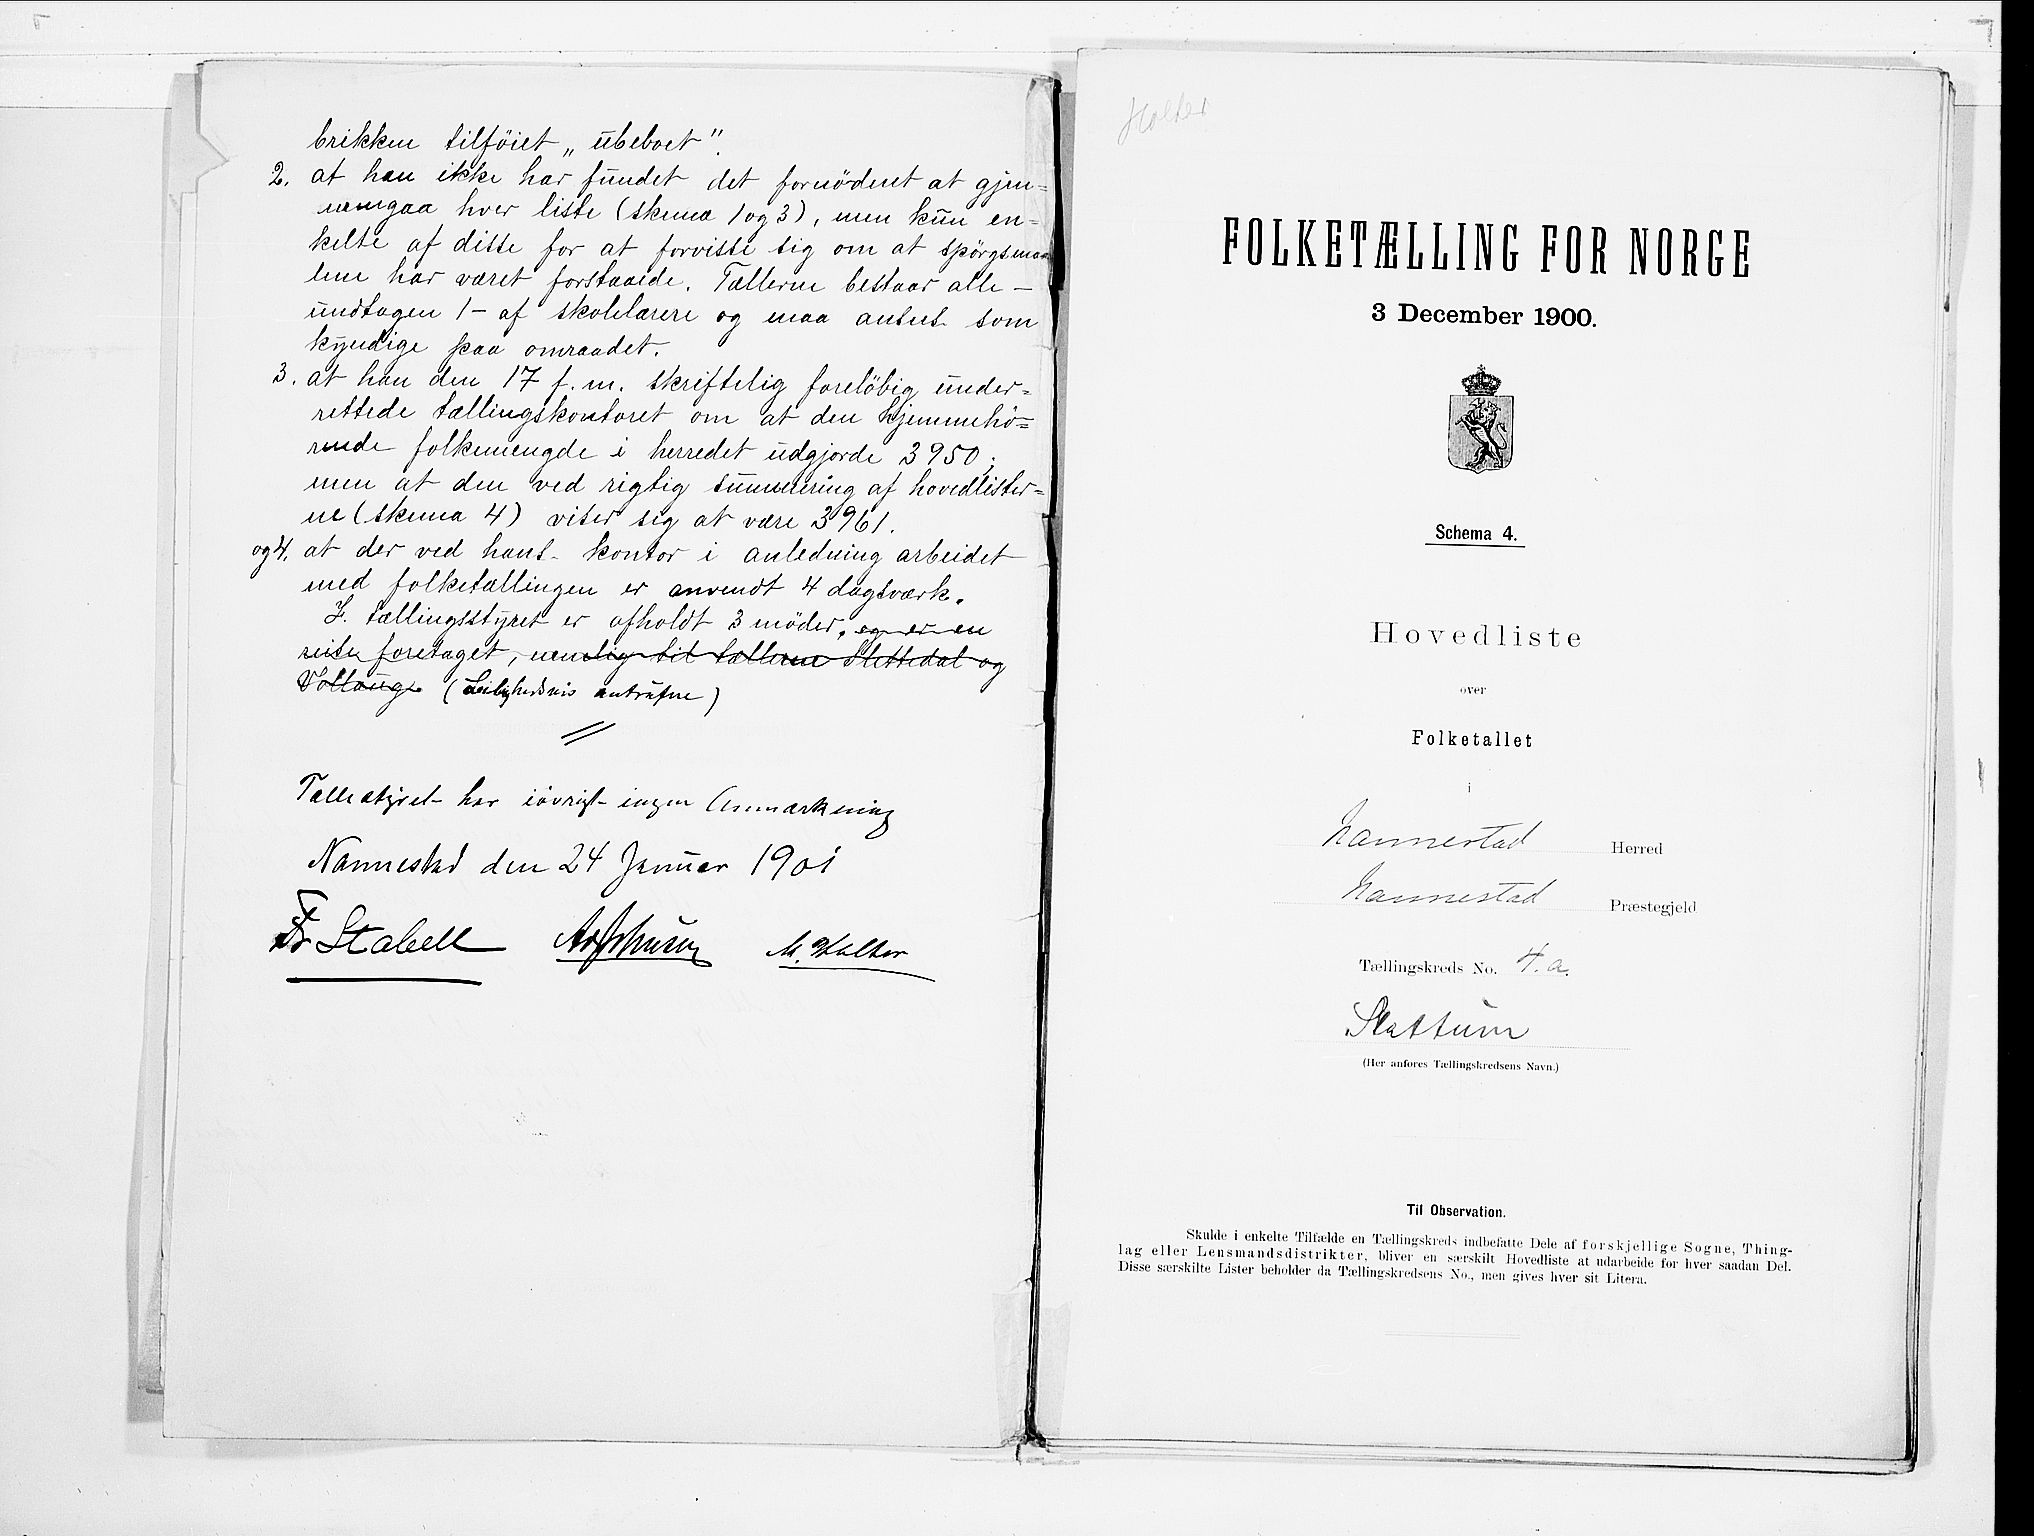 brikken tilföiet „ubeboet".
2. at han ikke har fundet det fornödent at gjen=
nemgaa hver liste (skema 1 og 3), men kun en=
kelte af disse for at forvisse sig om at spörgsmaa
lene har været forstaaede. Tællerne bestaar alle –
undtagen 1 – af skolelærere og maa antas som
kyndige paa omraadet.
3. at han den 17 f. m. skriftelig foreløbig under=
rettede tællingskontoret om at den hjemmehö=
rende folkemengde i herredet udgjorde 3950;
men at den ved rigtig summering af hovedlister=
ne (skema 4) viser sig at være 3961.
og 4. at der ved hans kontor i anledning arbeidet
med folketællingen er anvendt 4 dagsværk.
I tællingsstyret er afholdt 3 möder, og er en
reise foretaget, nemlig til tællerne Slettedal og
Vollaug (Leilighedsvis antrufne)
Tællestyret har iövrigt ingen Anmærkning
Nannestad den 24 Januar 1901
Fr Stabell M. Holter
Holter
FOLKETÆLLING FOR NORGE
3 December 1900.
Schema 4.
Hovedliste
over
Folketallet
i
Nannestad Herred
Nannestad Præstegjeld
Tællingskreds No. 4.a.
Slattum
(Her anføres Tællingskredsens Navn.)
Til Observation.
Skulde i enkelte Tilfælde en Tællingskreds indbefatte Dele af forskjellige Sogne, Thing-
lag eller Lensmandsdistrikter, bliver en særskilt Hovedliste at udarbeide for hver saadan Del.
Disse særskilte Lister beholder da Tællingskredsens No., men gives hver sit Litera.